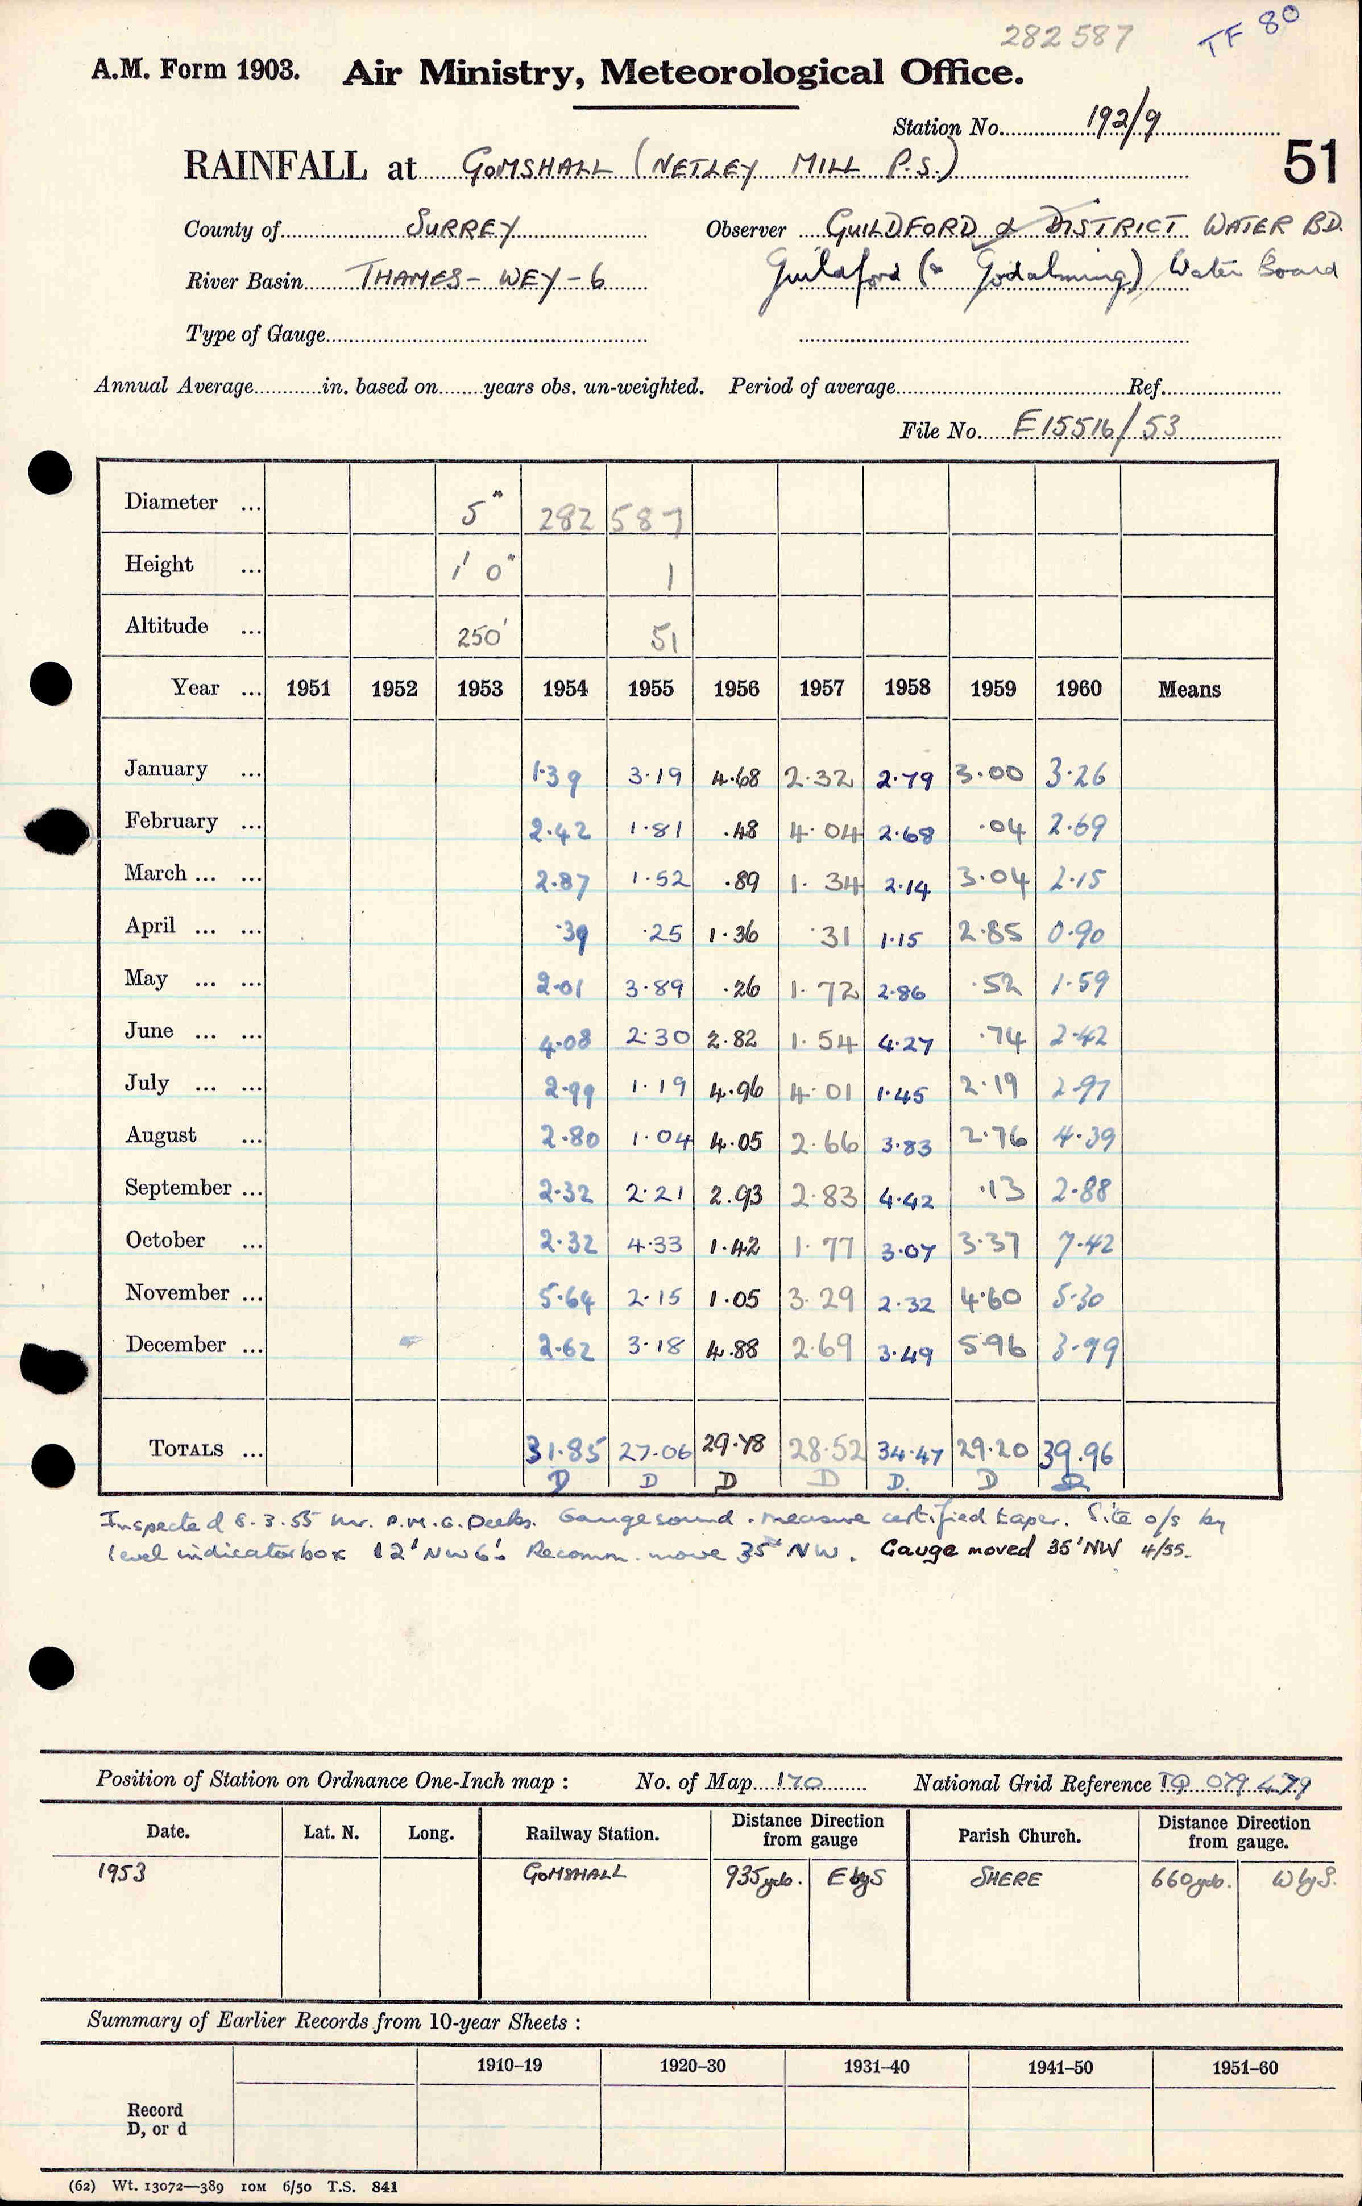 282587 TF 80
A.M. Form 1903. Air Ministry, Meteorological Office.
Station No. 192/9
RAINFALL at GOMSHALL (NETLEY MILL P.S.) 51
County of SURREY Observer GUILDFORD & DISTRICT WATER BD.
River Basin THAMES - WEY - 6 Guildford (& Godalming) Water Board
Type of Gauge
Annual Average in. based on years obs. un-weighted. Period of average Ref.
File No. E15516/53
Diameter ... 5" 282 587
Height ... 1' 0" 1
Altitude ... 250' 51
Year ... 1951 1952 1953 1954 1955 1956 1957 1958 1959 1960 Means
January ... 1.39 3.19 4.68 2.32 2.79 3.00 3.26
February ... 2.42 1.81 .48 4.04 2.68 .04 2.69
March ... ... 2.87 1.52 .89 1.34 2.14 3.04 2.15
April ... ... .39 .25 1.36 .31 1.15 2.85 0.90
May ... ... 2.01 3.89 .26 1.72 2.86 .52 1.59
June ... ... 4.08 2.30 2.82 1.54 4.27 .74 2.42
July ... ... 2.99 1.19 4.96 4.01 1.45 2.19 2.97
August ... 2.80 1.04 4.05 2.66 3.83 2.76 4.39
September ... 2.32 2.21 2.93 2.83 4.42 .13 2.88
October ... 2.32 4.33 1.42 1.77 3.07 3.37 7.42
November ... 5.64 2.15 1.05 3.29 2.32 4.60 5.30
December ... 2.62 3.18 4.88 2.69 3.49 5.96 3.99
TOTALS ... 31.85 27.06 29.78 28.52 34.47 29.20 39.96
D D D D D. D D
Inspected 8.3.55 Mr. P.M.G. Deeks. Gauge sound. Measure certified taper. Site o/s by
level indicator box 12' NW 6'. Recomm. move 35' NW. Gauge moved 35' NW 4/55.
Position of Station on Ordnance One-Inch map : No. of Map 170 National Grid Reference TQ 079 479
Date. Lat. N. Long. Railway Station. Distance Direction from gauge Parish Church. Distance Direction from gauge.
1953 GOMSHALL 935 yds. E by S SHERE 660 yds. W by S.
Summary of Earlier Records from 10-year Sheets :
1910–19 1920–30 1931–40 1941–50 1951–60
Record
D, or d
(62) Wt. 13072—389 10M 6/50 T.S. 841